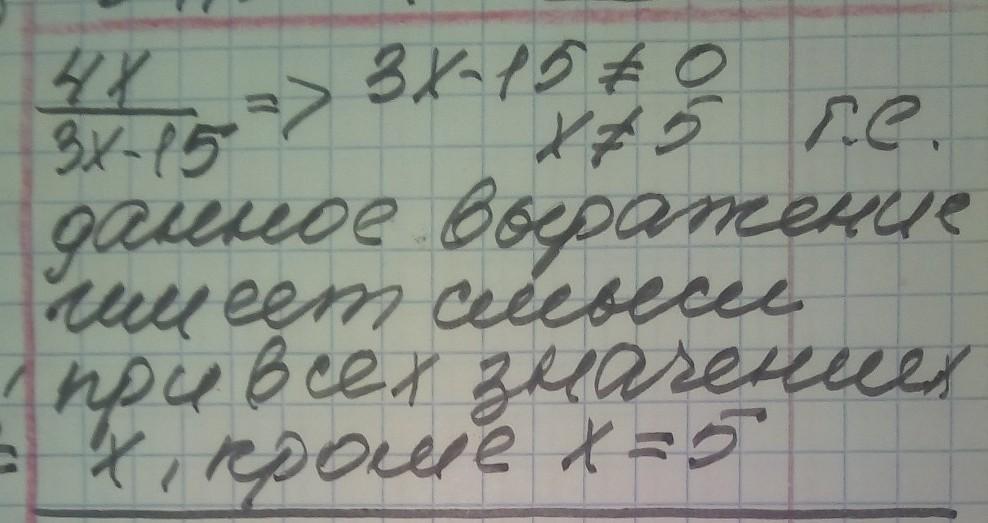 4x
3x-15 => 3x-15 ≠ 0
x ≠ 5 т.е.
данное выражение
имеет смысл
при всех значениях
x, кроме x = 5